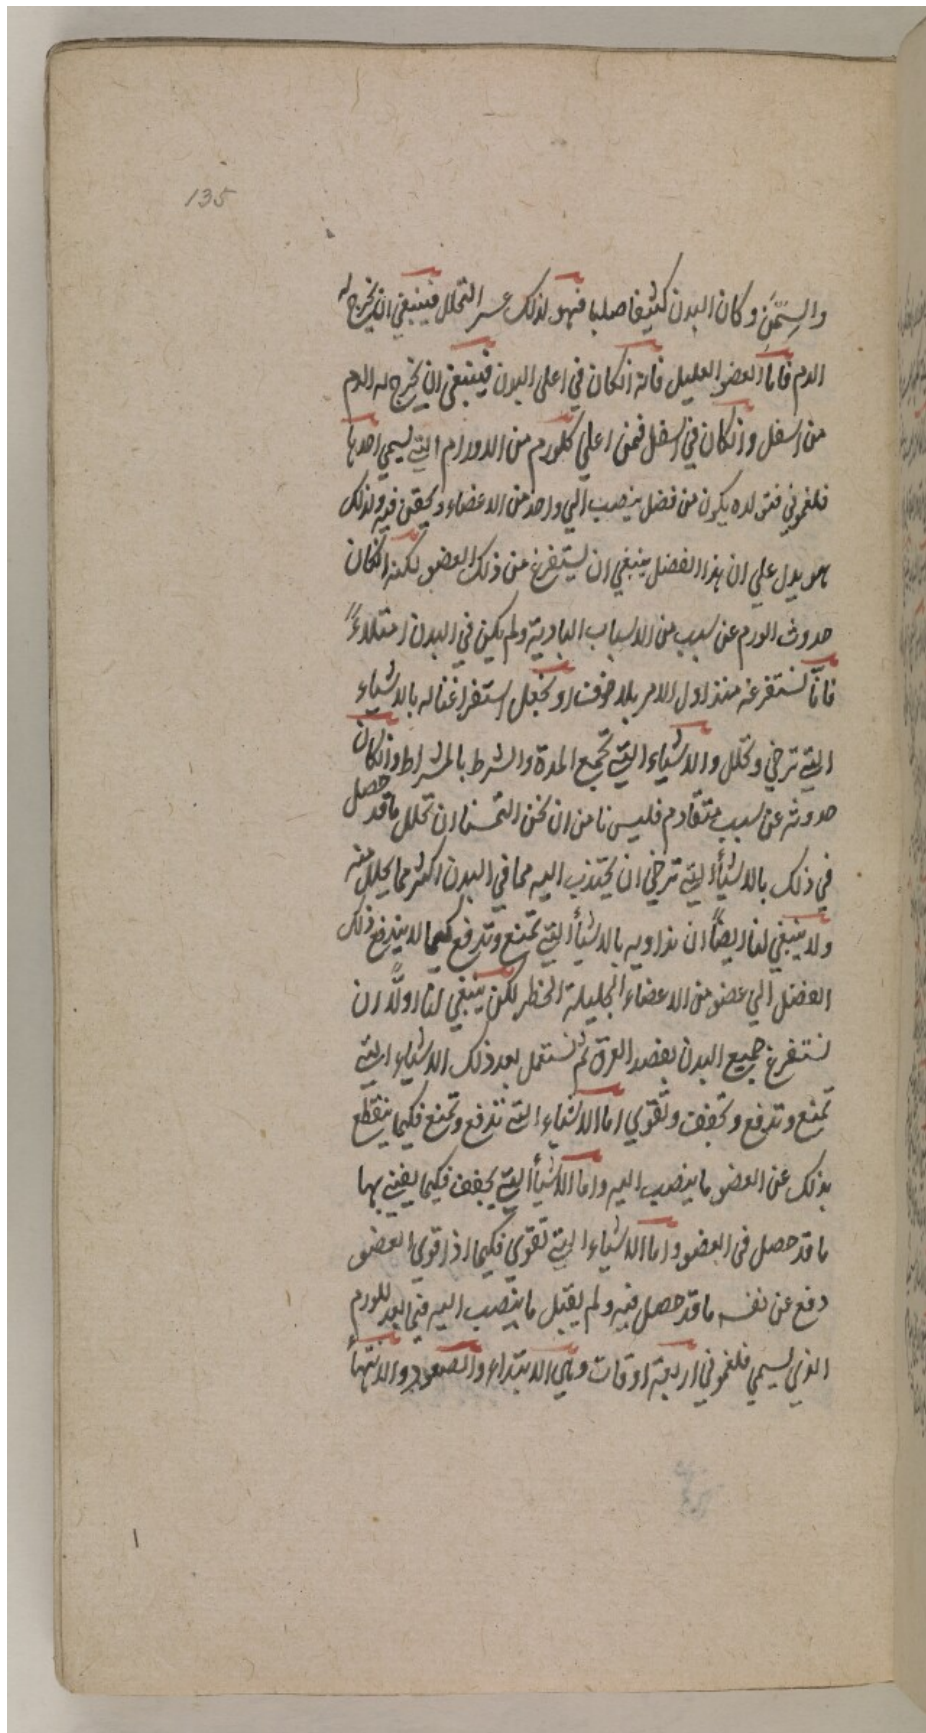 135
والسمَن وكان البدن كثيفا صلبا فهو لذلك عسر التحلل فينبغي ان يخرج له
الدم فاما العضو العليل فانه انكان في اعلى البدن فينبغي ان يخرج له الدم
من اسفل وانكان في اسفل فمن اعلي كلورم من الاورام التي تسمي احدها
فلغموني فتولده يكون من فضل ينصب الي واحد من الاعضاء ويحقن فيه ولذلك
هو يدل علي ان هذا الفضل ينبغي ان يستفرغ من ذلك العضو لكنه انكان
حدوث الورم عن سبب من الاسباب البادية ولم يكن في البدن امتلاءً
فانّا نستفرغه منذ اول الامر بلا خوف ونجعل استفراغنا له بالاشياء
التي ترخي وتحلل والاشياء التي تجمع المدة والشرط بالمشراط وانكان
حدوثه عن سبب متقادم فليس نامن ان نحن التمسنا ان تحلل ماقد حصل
في ذلك بالاشيأ التي ترخي ان يجتذب اليه مما في البدن اكثر مما يحلل منه
ولا ينبغي لنا ايضاً ان نداويه بالاشيأ التي تمنع وتدفع كيما لا يندفع ذلك
الفضل الي عضو من الاعضاء الجليلة الخطر لكن ينبغي لنا اولاً ان
نستفرغ جميع البدن بفصد العرق ثم نستعمل بعد ذلك الاشياء التي
تمنع وتدفع وتجفف وتقوي اما الاشياء التي تدفع وتمنع فكيما ينقطع
بذلك عن العضو ما ينصب اليه واما الاشيأ التي يجفف فكيما يفني بها
ما قد حصل في العضو واما الاشياء التي تقوي فكيما اذا قوي العضو
دفع عن نفسه ما قد حصل فيه ولم يقبل ما ينصب اليه فيما بعد للورم
الذي يسمي فلغموني اربعة اوقات وهي الابتداء والصعود والانتهأ